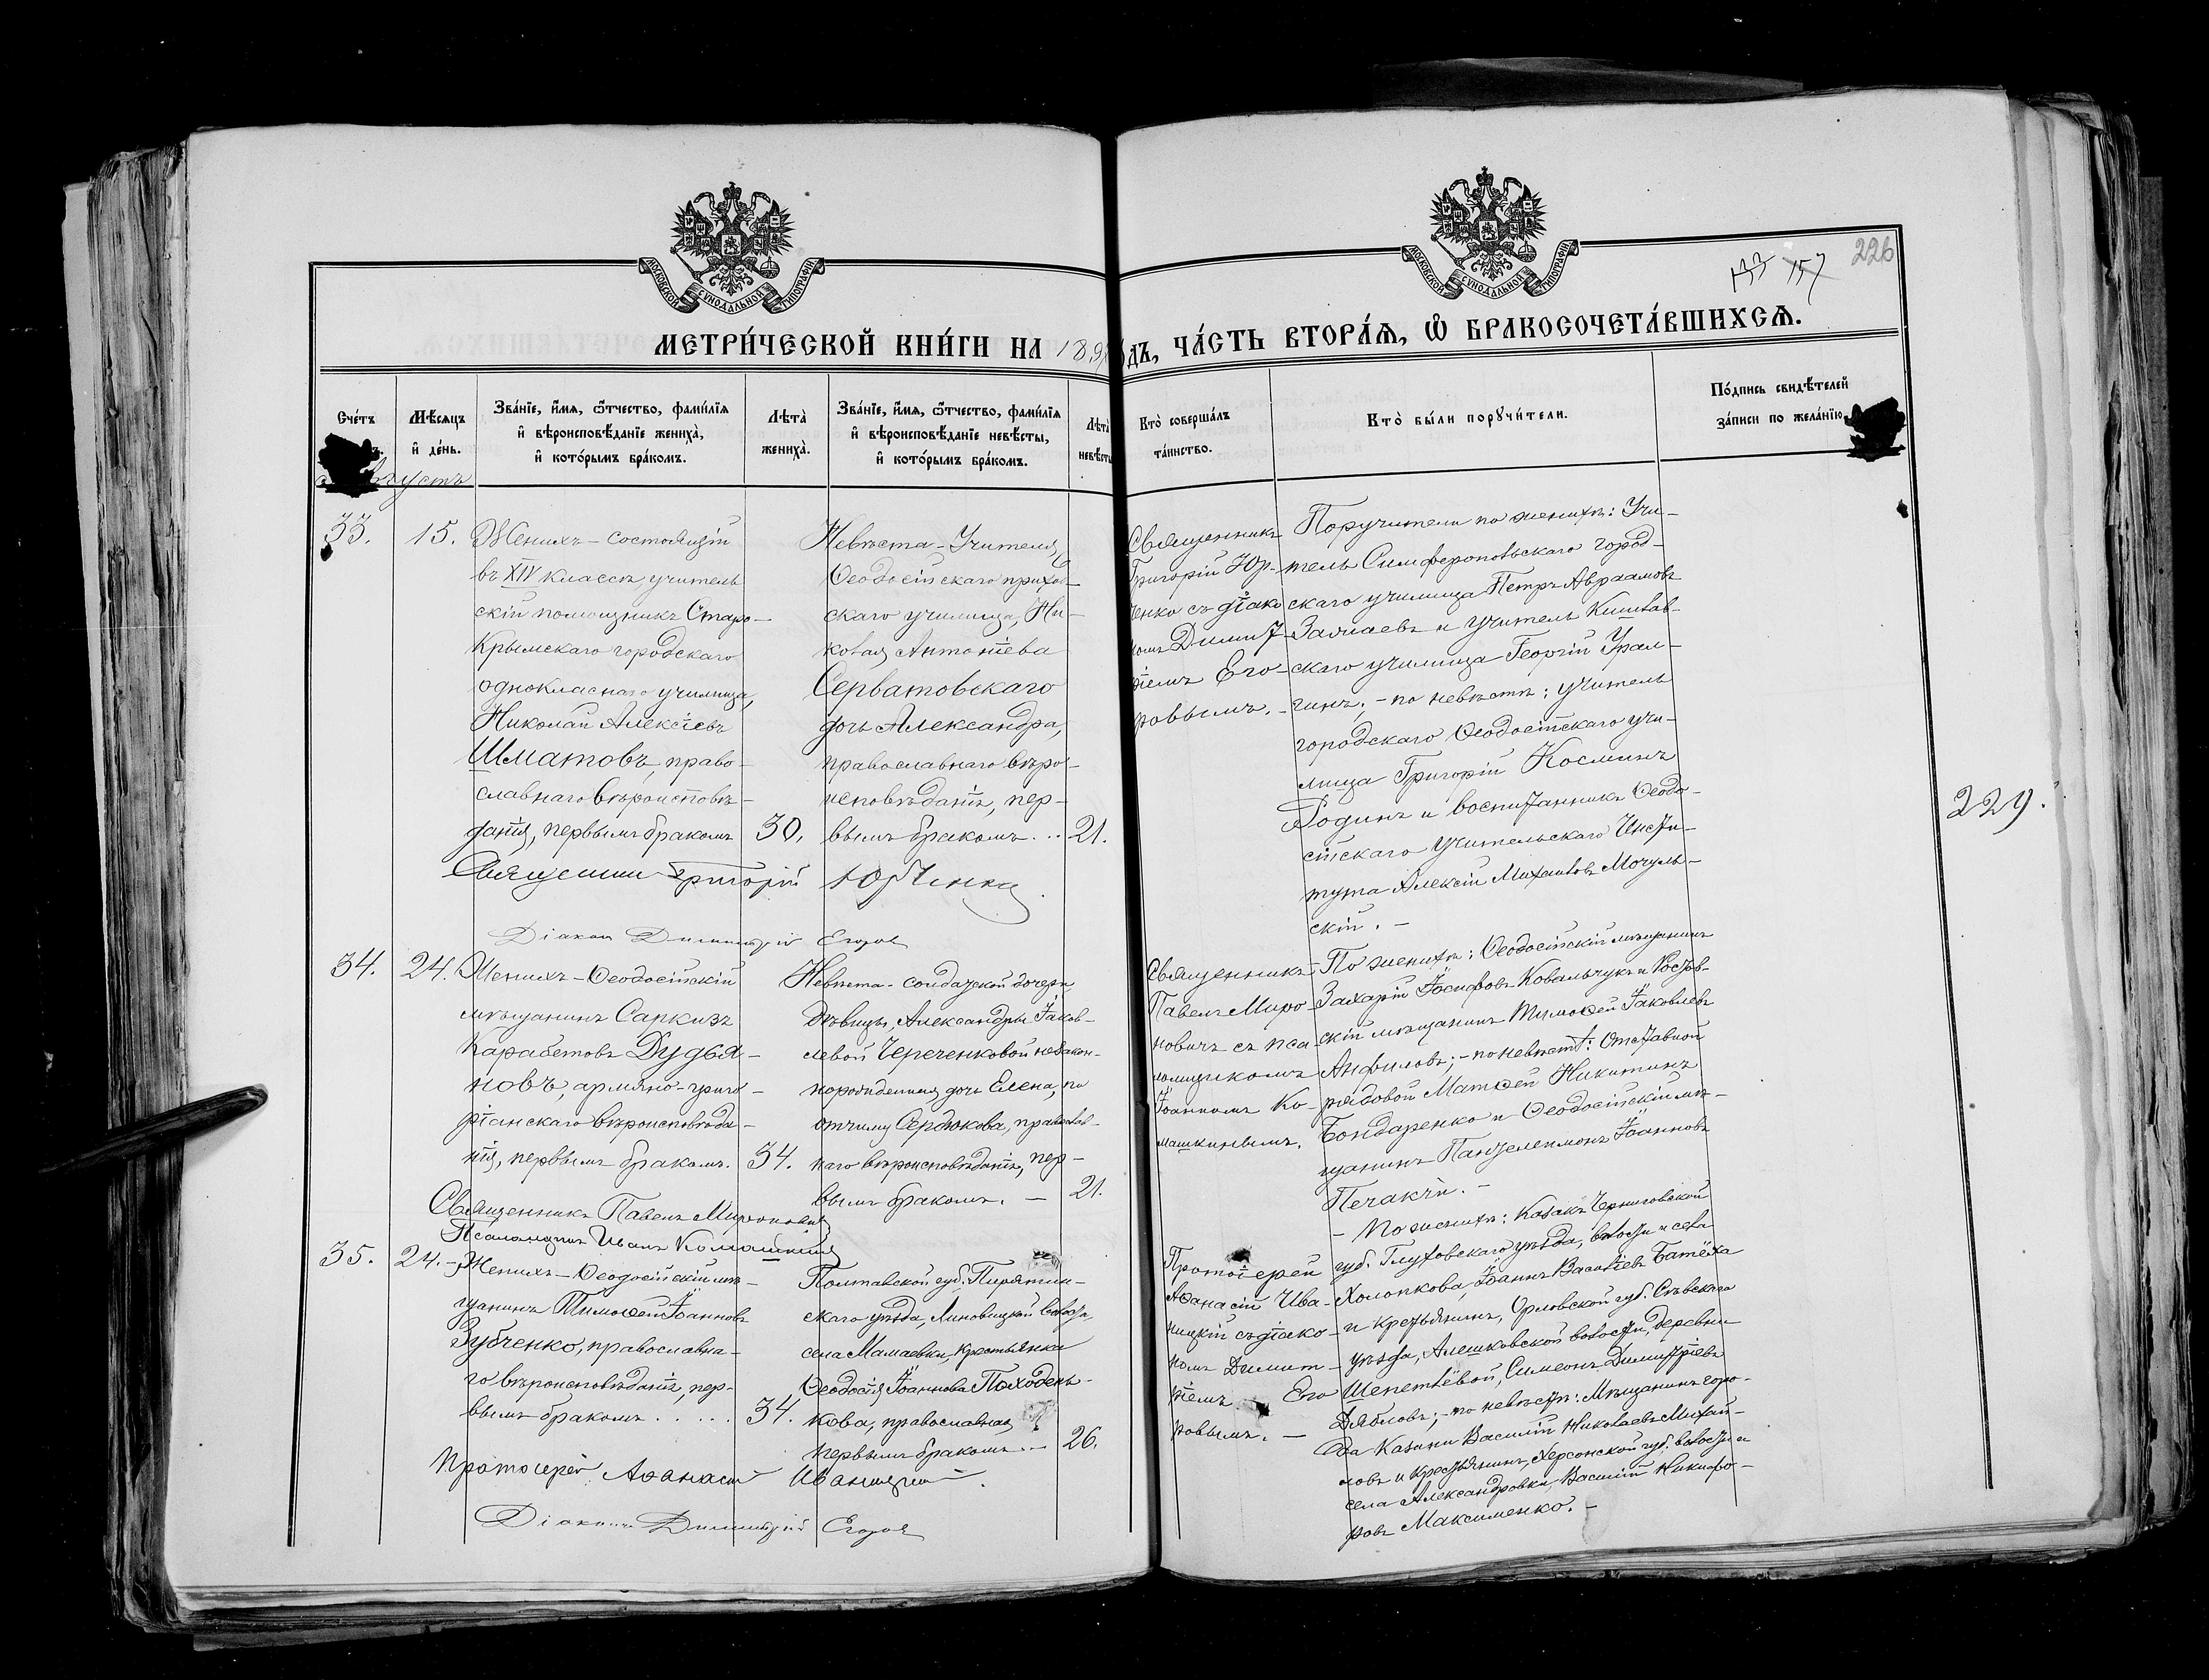 МОСКОВСКОЙ СѴНОДАЛЬНОЙ ТИПОГРАФІИ
МОСКОВСКОЙ СѴНОДАЛЬНОЙ ТИПОГРАФІИ
133 157 226
МЕТРИ́ЧЕСКОЙ КНИ́ГИ НА 189
ДЪ, ЧА́СТЬ ВТОРА́Ѧ, Ѿ БРАКОСОЧЕТА́ВШИХСѦ.
Сче́тъ
Мѣсяцъ и де́нь.
Зва́нїе, и҆́мѧ, ѻ҆́тчество, фами́лїѧ
и҆ вѣроисповѣ́данїе жениха̀,
и҆ кото́рымъ бра́комъ.
Лѣ́та
жениха̀.
Зва́нїе, и҆́мѧ, ѻ҆́тчество, фами́лїѧ
и҆ вѣроисповѣ́данїе невѣ́сты,
и҆ кото́рымъ бра́комъ.
Лѣ́та
невѣ́сты
Кто̀ соверша́лъ
та́инство.
Кто̀ бы́ли порꙋчи́тели.
По́дпись свидѣ́телей
за́писи по жела́нїю
густъ
33.
15.
Женихъ – состоящій
въ XIV классѣ учитель
скій помощникъ Старо-
Крымскаго городскаго
однокласнаго училища,
Николай Алексіевъ
Шматовъ, право-
славнаго вѣроисповѣ-
данія, первымъ бракомъ
30.
Невѣста – Учителя
Ѳеодосійскаго приход-
скаго училища, Ни-
колая Антоніева
Серватовскаго
дочь Александра,
православнаго вѣро-
исповѣданія, пер-
вымъ бракомъ...
21.
Священникъ Григорій Юрченко
Діаконъ Димитрій Егоровъ
Священникъ
Григорій Юр-
ченко съ діако
номъ Димит-
ріемъ Его-
ровымъ.
Поручители по женихѣ: Учи-
тель Симферопольскаго город-
скаго училища Петръ Авраамовъ
и учитель
скаго училища Георгій
-гинъ; – по невѣстѣ: учитель
городскаго Ѳеодосійскаго учи-
лища Григорій Косминъ
Родинъ и воспитанникъ Ѳеодо-
сійскаго Учительскаго Инсти-
тута Алексій Михаиловъ Мочуль-
скій. –
34.
24.
Женихъ – Ѳеодосійскій
мѣщанинъ Саркизъ
Карабетовъ Дудья-
новъ, армяно-григо-
ріанскаго вѣроисповѣда-
нія, первымъ бракомъ.
34.
Невѣста – солдатской дочери
дѣвицы, Александры Іаков-
левой Череченковой незакон-
норожденная дочь Елена, по
отчиму Сердюкова, православ-
наго вѣроисповѣданія, пер-
вымъ бракомъ. –
21.
Священникъ Павелъ Мироновичъ
Псаломщикъ Иванъ Комашкинъ
Священникъ
Павелъ Миро-
новичъ съ пса-
ломщикомъ
Іоанномъ Ко-
машкинымъ.
По женихѣ: Ѳеодосійскій мѣщанинъ
Захарій Іосифовъ Ковальчукъ и Ростов-
скій мѣщанинъ Тимоѳей Іаковлевъ
Анфиловъ; – по невѣстѣ: отставной
рядовой Матѳей Никитинъ
Бондаренко и Ѳеодосійскій мѣ-
щанинъ Пантелеимонъ Іоанновъ
Печакчи. –
229.
35.
24. –
Женихъ – Ѳеодосійскій мѣ-
щанинъ Тимоѳей Іоанновъ
Зубченко, православна-
го вѣроисповѣданія, пер-
вымъ бракомъ.....
34.
Полтавской губ. Пирятин-
скаго уѣзда, Линовицкой волости,
села Мамаевки, крестьянка
Ѳеодосія Іоаннова Походень-
кова, православная,
первымъ бракомъ –
26.
Протоіерей Аѳанасій Иваницкій
Діаконъ Димитрій Егоровъ
Протоіерей
Аѳанасій Ива-
ницкій съ діако-
номъ Димит-
ріемъ Его
ровымъ. –
– По женихѣ: казакъ Черниговской
губ. Глуховскаго уѣзда, волости и села
Холопкова, Іоаннъ Василіевъ
и крестьянинъ, Орловской губ. Сѣвскаго
уѣзда, Алешковской волости, деревни
Шепетлёвой, Симеонъ Димитріевъ
Дябловъ; – по невѣстѣ: Мѣщанинъ горо-
да Казани Василій Николаевъ Михай-
ловъ и крестьянинъ, Херсонской губ. волости и
села Александровки, Василій Никифо-
ровъ Максименко. –